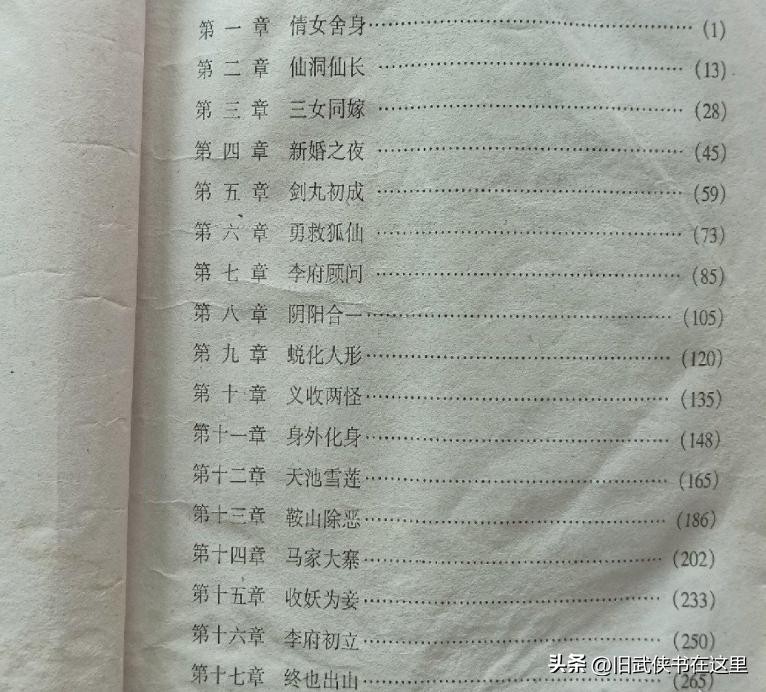 第一章 倩女舍身 (1)
第二章 仙洞仙长 (13)
第三章 三女同嫁 (28)
第四章 新婚之夜 (45)
第五章 剑丸初成 (59)
第六章 勇救狐仙 (73)
第七章 李府顾问 (85)
第八章 阴阳合一 (105)
第九章 蜕化人形 (120)
第十章 义收两怪 (135)
第十一章 身外化身 (148)
第十二章 天池雪莲 (165)
第十三章 鞍山除恶 (186)
第十四章 马家大寨 (202)
第十五章 收妖为妾 (233)
第十六章 李府初立 (250)
第十七章 终也出山 (265)
头条 @旧武侠书在这里